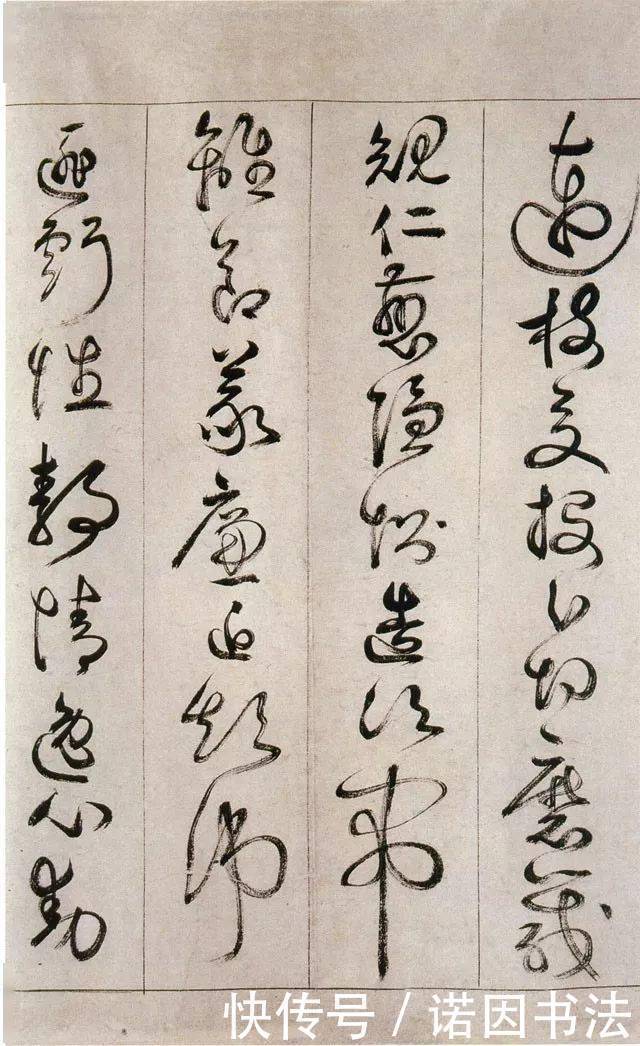 連枝交投分切磨箴
規仁慈隱惻造次弗
離節義廉退顛沛
匪虧性靜情逸心動
快传号 / 诺因书法